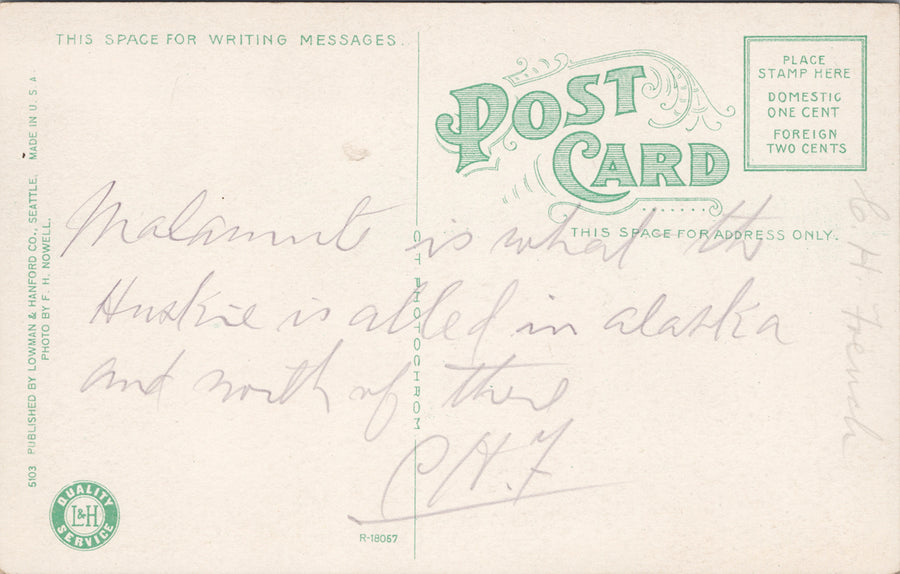 THIS SPACE FOR WRITING MESSAGES.
POST
CARD
PLACE
STAMP HERE
DOMESTIC
ONE CENT
FOREIGN
TWO CENTS
THIS SPACE FOR ADDRESS ONLY.
Malamute is what the
Huskie is alled in alaska
and north of there
C H. F
C. H French
CT PHOTOCHROM
5103 PUBLISHED BY LOWMAN & HANFORD CO., SEATTLE. MADE IN U.S.A.
PHOTO BY F. H. NOWELL.
QUALITY
L&H
SERVICE
R-18067